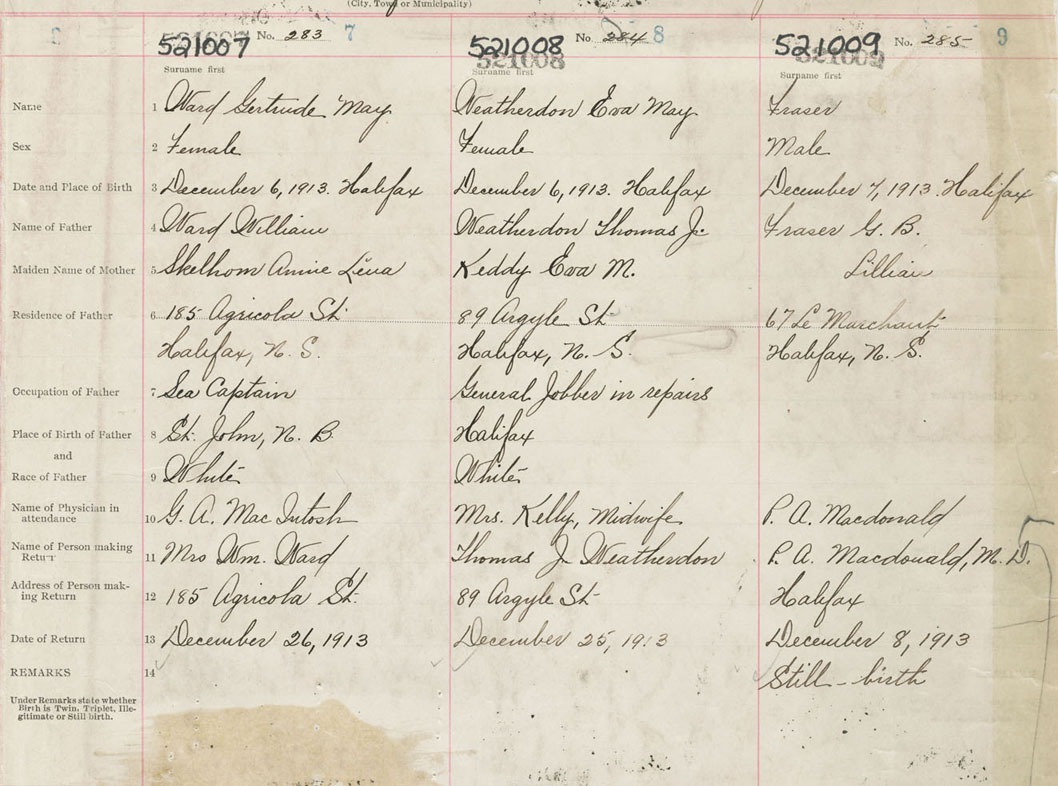 (City, Town or Municipality)
521007 No. 283 7
521008 No. 284 8
521009 No. 285 9
521008
Surname first
Surname first
Surname first
Name 1 Ward Gertrude May Weatherdon Eva May Fraser
Sex 2 Female Female Male
Date and Place of Birth 3 December 6, 1913. Halifax December 6, 1913. Halifax December 7, 1913. Halifax
Name of Father 4 Ward William Weatherdon Thomas J. Fraser G. B.
Maiden Name of Mother 5 Skelhorn Annie Lena Keddy Eva M. Lillian
Residence of Father 6 185 Agricola St. 89 Argyle St 67 Le Marchant
Halifax, N. S. Halifax, N. S. Halifax, N. S.
Occupation of Father 7 Sea Captain General Jobber in repairs
Place of Birth of Father 8 St. John, N. B. Halifax
and
Race of Father 9 White White
Name of Physician in
attendance 10 G. A. Mac Intosh Mrs. Kelly, Midwife P. A. Macdonald
Name of Person making
Return 11 Mrs Wm. Ward Thomas J. Weatherdon P. A. Macdonald, M. D.
Address of Person mak-
ing Return 12 185 Agricola St. 89 Argyle St Halifax
Date of Return 13 December 26, 1913 December 25, 1913 December 8, 1913
REMARKS 14 Still-birth
Under Remarks state whether
Birth is Twin, Triplet, Ille-
gitimate or Still birth.